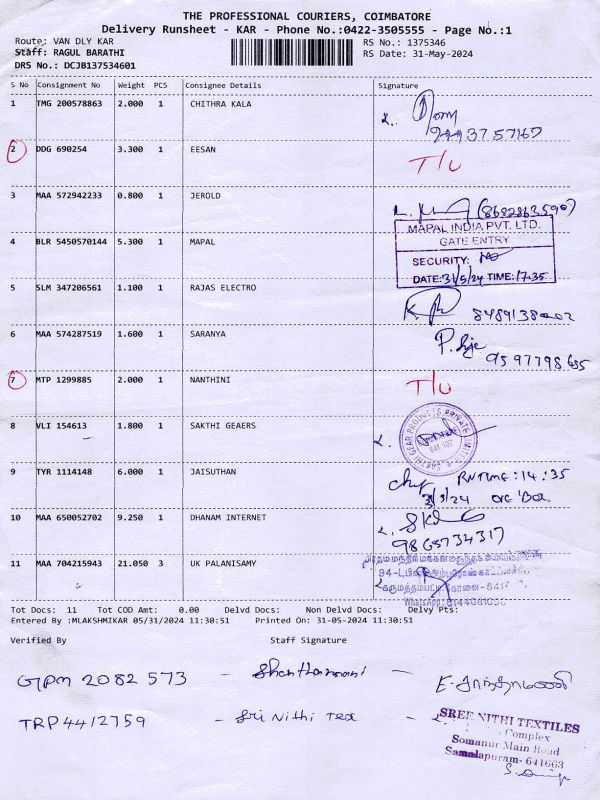 THE PROFESSIONAL COURIERS, COIMBATORE
Delivery Runsheet - KAR - Phone No.:0422-3505555 - Page No.:1
Route: VAN DLY KAR RS No.: 1375346
Staff: RAGUL BARATHI RS Date: 31-May-2024
DRS No.: DCJB137534601
S No Consignment No Weight PCS Consignee Details Signature
1 TMG 200578863 2.000 1 CHITHRA KALA
2 DDG 690254 3.300 1 EESAN T/U
3 MAA 572942233 0.800 1 JEROLD (8682863590)
MAPAL INDIA PVT. LTD.
GATE ENTRY
4 BLR 5450570144 5.300 1 MAPAL SECURITY:
DATE:31/5/24 TIME:17.35
5 SLM 347206561 1.100 1 RAJAS ELECTRO
6 MAA 574287519 1.600 1 SARANYA
7 MTP 1299885 2.000 1 NANTHINI T/U
8 VLI 154613 1.800 1 SAKTHI GEAERS
SAKTHI GEAR PRODUCTS PRIVATE LIMITED
641 107
9 TYR 1114148 6.000 1 JAISUTHAN RNTIME:14:35
31/5/24
10 MAA 650052702 9.250 1 DHANAM INTERNET
9865734317
11 MAA 704215943 21.050 3 UK PALANISAMY
Tot Docs: 11 Tot COD Amt: 0.00 Delvd Docs: Non Delvd Docs: Delvy Pts:
Entered By :MLAKSHMIKAR 05/31/2024 11:30:51 Printed On: 31-05-2024 11:30:51
Verified By Staff Signature
GTPM 2082 573 - Shanthamani - E. சாந்தாமணி
TRP 4412759 - Sri Nithi Tex -
SREE NITHI TEXTILES
Complex
Somanur Main Road
Samalapuram- 641663